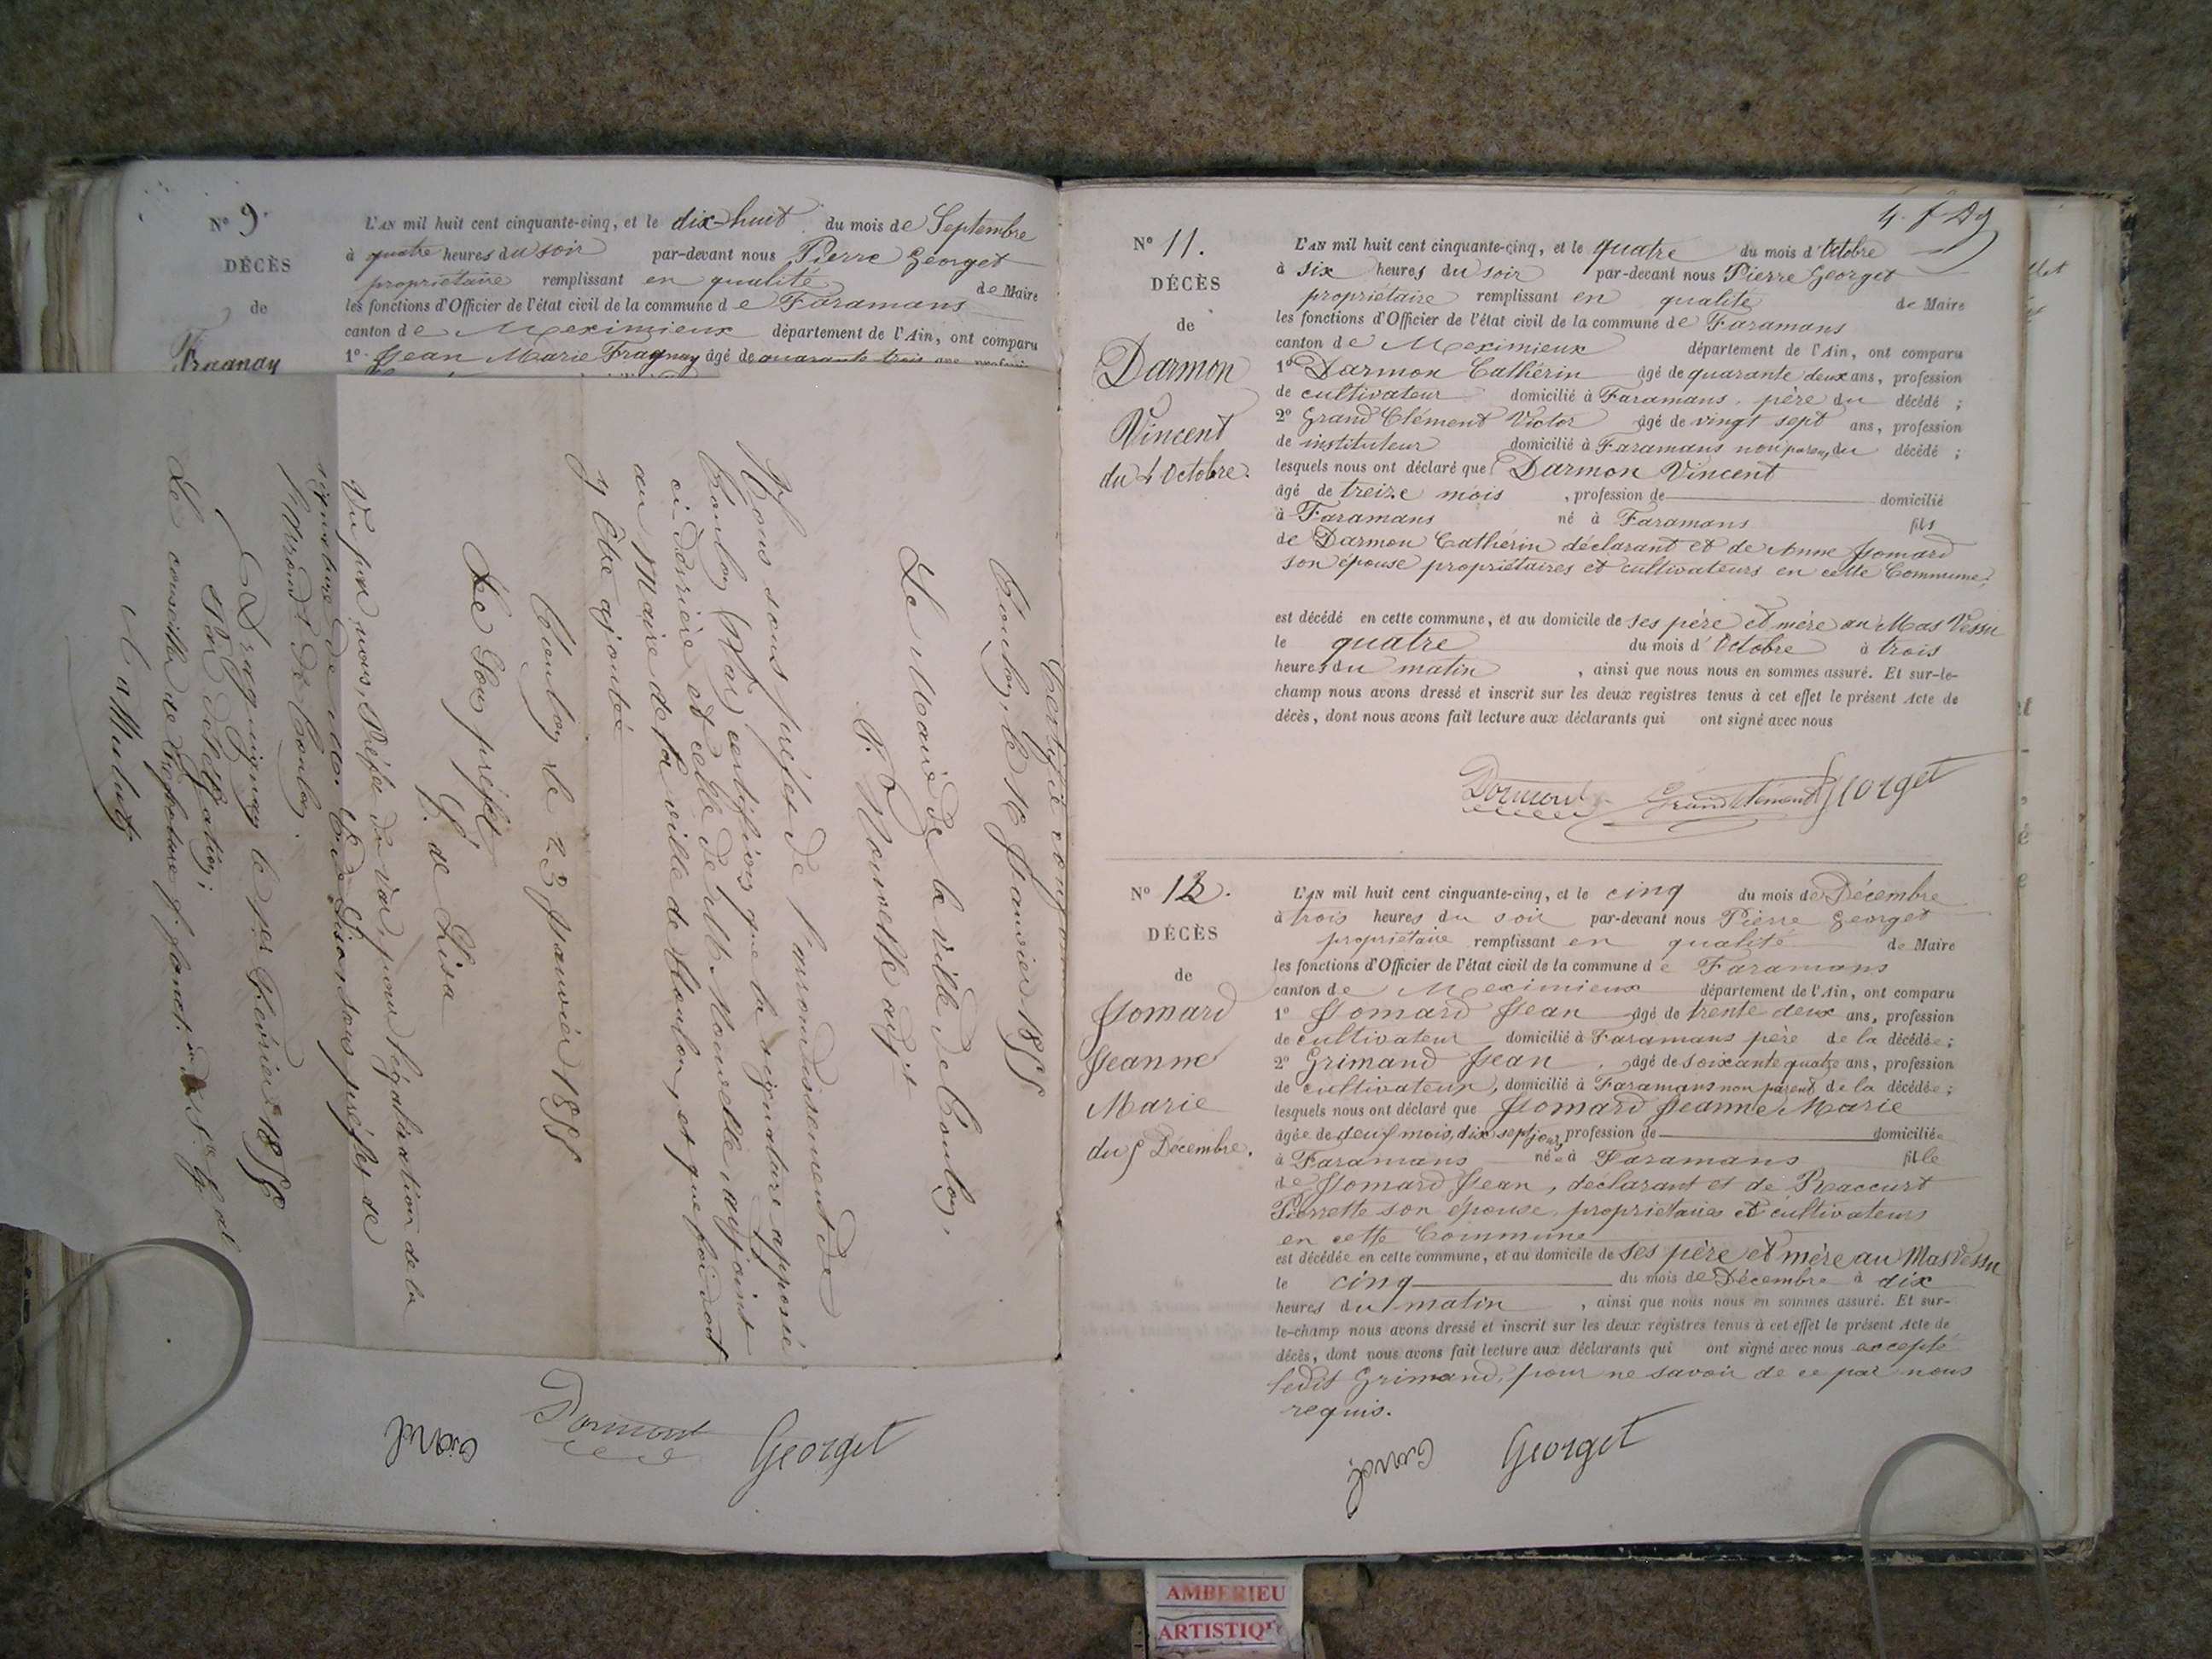 N° 9.
DÉCÈS
de
Fragnay
L'AN mil huit cent cinquante-cinq, et le dix-huit du mois de Septembre
à quatre heures du soir par-devant nous Pierre Georget
propriétaire remplissant en qualité de Maire
les fonctions d'Officier de l'état civil de la commune de Faramans
canton de Meximieux département de l'Ain, ont comparu
1° Jean Marie Fragnay âgé de quarante trois ans
Certifié conforme
Toulon, le 18 Janvier 1855
Le Maire de la ville de Toulon,
F. Nouvelle adjt
Nous sous préfet de l'arrondissement de
Toulon (Var) certifions que la signature apposée
ci-derrière est celle de Mr. Nouvelle adjoint
au Maire de la ville de Toulon, et que foi doit
y être ajoutée
Toulon le 23 Janvier 1855
Le Sous préfet,
de Lisa
Vu par nous, Préfet du Var, pour légalisation de la
signature de sous préfet de
l'arrondt de Toulon.
Draguignan le Février 1855
Par délégation;
Le conseiller de Préfecture
Girard
Dormond
Georget
4. f
N° 11.
DÉCÈS
de
Darmon
Vincent
du 4 Octobre.
L'AN mil huit cent cinquante-cinq, et le quatre du mois d'Octobre
à six heures du soir par-devant nous Pierre Georget
propriétaire remplissant en qualité de Maire
les fonctions d'Officier de l'état civil de la commune de Faramans
canton de Meximieux département de l'Ain, ont comparu
1° Darmon Cathérin âgé de quarante deux ans, profession
de cultivateur domicilié à Faramans, père du décédé ;
2° Grand Clément Victor âgé de vingt sept ans, profession
de instituteur domicilié à Faramans non parent du décédé ;
lesquels nous ont déclaré que Darmon Vincent
âgé de treize mois , profession de domicilié
à Faramans né à Faramans fils
de Darmon Cathérin déclarant et de Anne Jomard
son épouse propriétaires et cultivateurs en cette Commune,
est décédé en cette commune, et au domicile de ses père et mère au Mas Vessu
le quatre du mois d'Octobre à trois
heures du matin , ainsi que nous nous en sommes assuré. Et sur-le-
champ nous avons dressé et inscrit sur les deux registres tenus à cet effet le présent Acte de
décès, dont nous avons fait lecture aux déclarants qui ont signé avec nous
Dormond Grand Clément Georget
N° 12.
DÉCÈS
de
Jomard
Jeanne
Marie
du 5 Décembre.
L'AN mil huit cent cinquante-cinq, et le cinq du mois de Décembre
à trois heures du soir par-devant nous Pierre Georget
propriétaire remplissant en qualité de Maire
les fonctions d'Officier de l'état civil de la commune de Faramans
canton de Meximieux département de l'Ain, ont comparu
1° Jomard Jean âgé de trente deux ans, profession
de cultivateur domicilié à Faramans père de la décédée ;
2° Grimand Jean , âgé de soixante quatre ans, profession
de cultivateur, domicilié à Faramans non parent de la décédée ;
lesquels nous ont déclaré que Jomard Jeanne Marie
âgée de neuf mois, dix sept jours, profession de domiciliée
à Faramans née à Faramans fille
de Jomard Jean, déclarant et de Raccurt
Pierrette son épouse, propriétaires et cultivateurs
en cette Commune
est décédée en cette commune, et au domicile de ses père et mère au Mas Vessu
le cinq du mois de Décembre à dix
heures du matin , ainsi que nous nous en sommes assuré. Et sur-
le-champ nous avons dressé et inscrit sur les deux registres tenus à cet effet le présent Acte de
décès, dont nous avons fait lecture aux déclarants qui ont signé avec nous excepté
ledit Grimand, pour ne savoir de ce par nous
requis.
Georget
AMBERIEU
ARTISTIQ